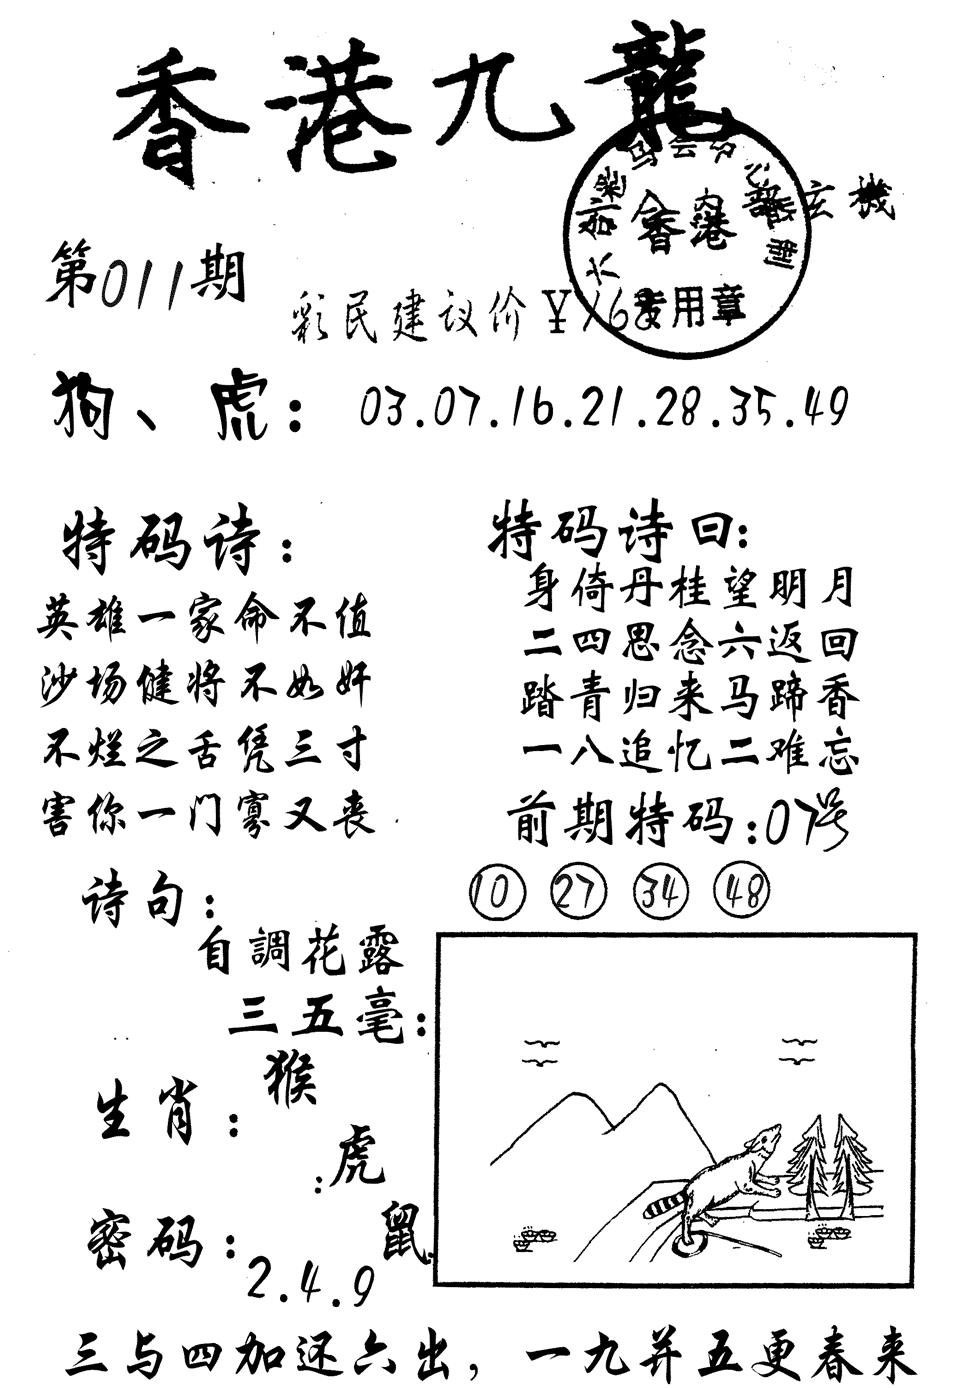 香港九龍
玄機
第011期
香港
彩民建议价￥168
专用章
狗、虎：03.07.16.21.28.35.49
特码诗：
英雄一家命不值
沙场健将不如奸
不烂之舌凭三寸
害你一门寡又丧
特码诗曰：
身倚丹桂望明月
二四思念六返回
踏青归来马蹄香
一八追忆二难忘
前期特码：07号
10 27 34 48
诗句：
自調花露
三五毫：
生肖：
猴
虎
鼠
密码：
2.4.9
三与四加还六出，一九并五更春来